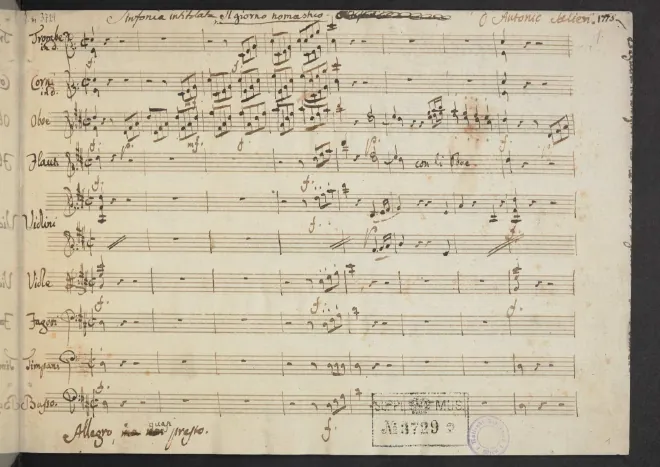 Sinfonia intitolata Il giorno nomastico
Antonio Salieri 1775
Trombe
in d.
Corni
in d.
Oboe
Flauti
con li Oboe.
Violini
Viole
Fagoti
Timpani
Basso.
Allegro, quasi presto.
f.
SUPPL. MUS.
№ 3729